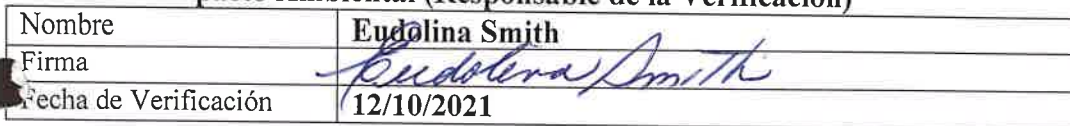 pacto Ambiental (Responsable de la Verificación)
Nombre Eudolina Smith
Firma Eudolina Smith
Fecha de Verificación 12/10/2021